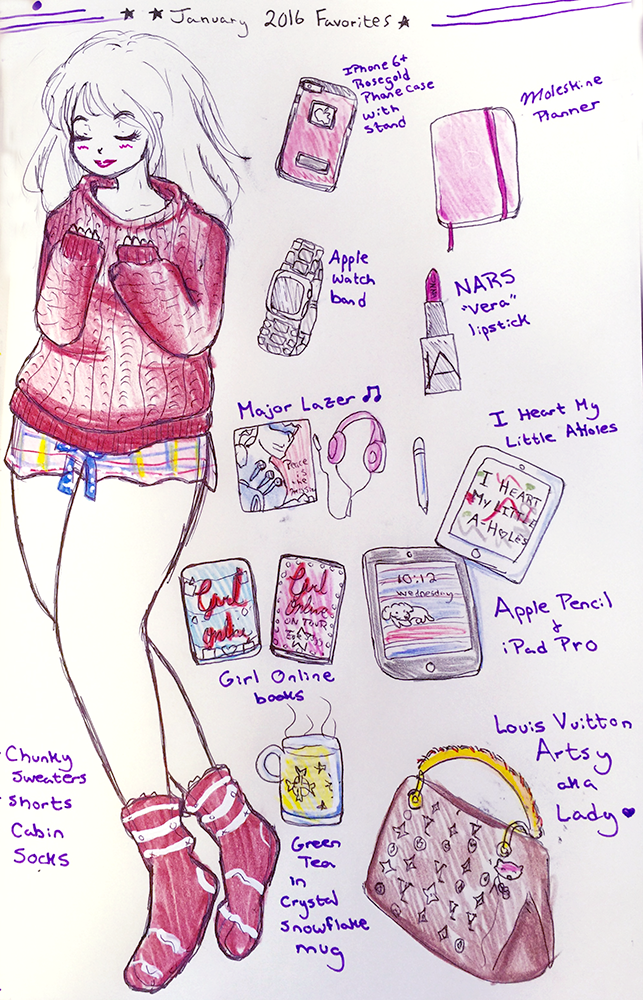 ★ ★ January 2016 Favorites ★
iPhone 6+
Rosegold
Phone case
with
stand
Moleskine
Planner
Apple
watch
band
NARS
"Vera"
lipstick
Major Lazer ♫
Peace
is
the
I Heart My
Little A♥Holes
I HEART
MY LITTLE
A-H♥LES
Girl
Online
Girl
Online
ON TOUR
10:12
Wednesday
Apple Pencil
+
iPad Pro
Girl Online
books
Chunky
Sweaters
Shorts
Cabin
Socks
Green
Tea
in
Crystal
Snowflake
mug
Louis Vuitton
Artsy
aka
Lady ♥